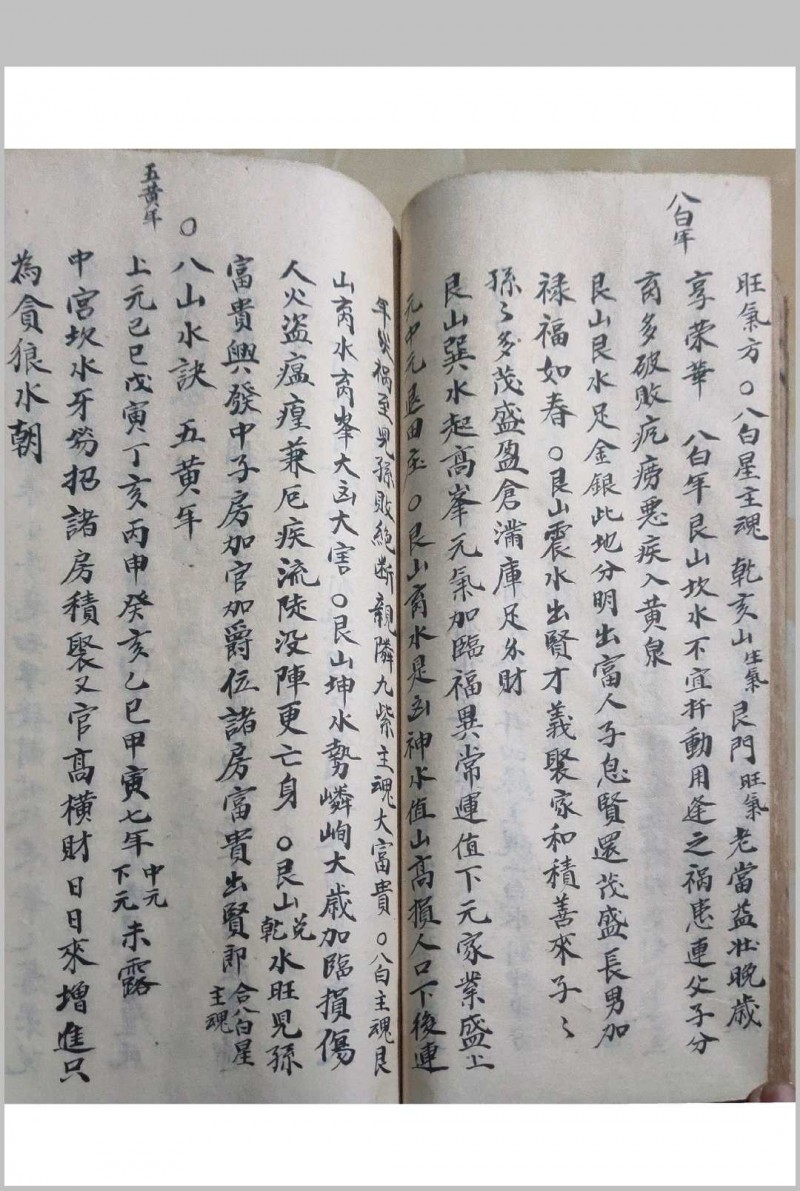 八白年
旺氣方〇八白星主魂 乾亥山生氣艮門旺氣老當益壯晚歲
享荣華 八白年艮山坎水不宜扦動用逢之禍患連父子分
房多破敗疙痨悪疾入黄泉
艮山艮水足金銀此地分明出富人子息賢還茂盛長男加
禄福如春〇艮山震水出賢才義聚家和積善來子〻
孫〻多茂盛盈倉滿庫足分財
艮山巽水起高峯元氣加臨福異常運值下元家業盛上
元中元退田庄〇艮山离水是凶神水值山高損人口下後連
年災禍至見孫敗絶断親隣九紫主魂大富貴〇八白主魂艮
山离水离峯大凶大害〇艮山坤水勢嶙峋大歲加臨損傷
人火盗瘟㾮兼厄疾流陡没陣更亡身 〇艮山兑乾水旺見孫
富貴興發中子房加官加爵位諸房富貴出賢即合八白星主魂
五黄年
〇八山水訣 五黄年
上元己巳戊寅丁亥丙申癸亥乙巳甲寅七年中元下元未露
中宫坎水牙势招諸房積聚又官髙横財日日來增進只
為貪狼水朝